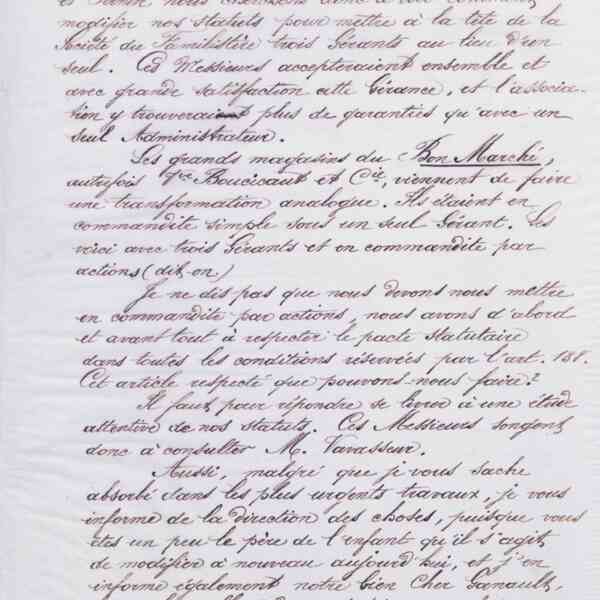 modifier nos statuts pour mettre à la tête de la
Société du Familistère trois Gérants au lieu d'un
seul. Ces Messieurs accepteraient ensemble et
avec grande satisfaction cette Gérance, et l'associa-
tion y trouverait plus de garanties qu'avec un
seul Administrateur.
Les grands magasins du Bon Marché,
autrefois Boucicaut et Cie, viennent de faire
une transformation analogue. Ils étaient en
commandite simple sous un seul Gérant. Les
voici avec trois Gérants et en commandite par
actions (dit-on)
Je ne dis pas que nous devons nous mettre
en commandite par actions, nous avons d'abord
et avant tout à respecter le pacte statutaire
dans toutes les conditions réservées par l'art. 138.
Cet article respecté que pouvons-nous faire?
Il faut pour répondre se livrer à une étude
attentive de nos statuts. Ces Messieurs songent
donc à consulter M. Vavasseur.
Aussi, malgré que je vous sache
absorbé dans les plus urgents travaux, je vous
informe de la direction des choses, puisque vous
êtes un peu le père de l'enfant qu'il s'agit
de modifier à nouveau aujourd'hui, et j'en
informe également notre bien cher Ganault,